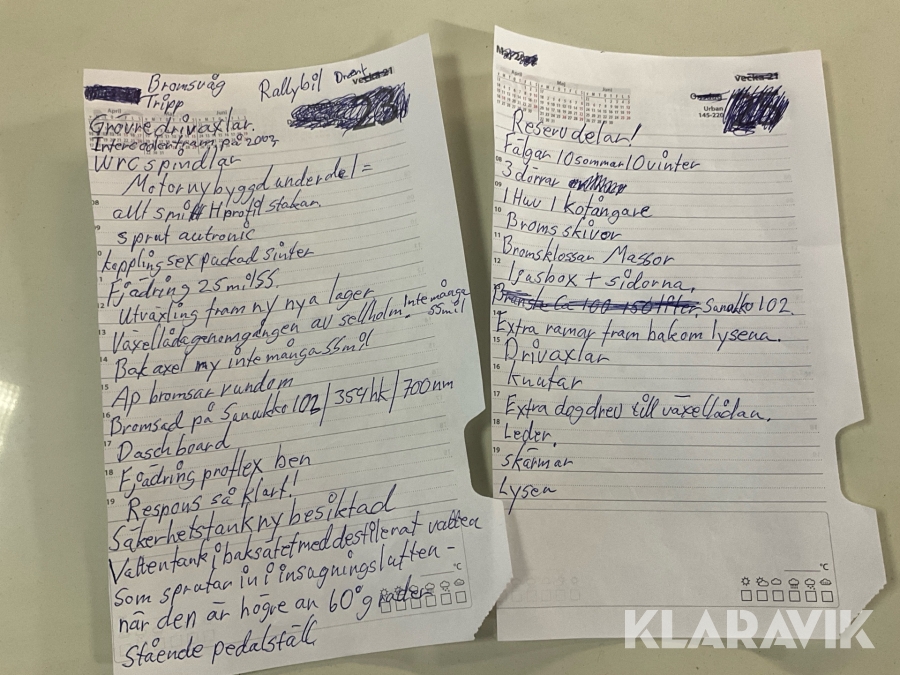 Bromsvåg
Tripp
Rallybil
vecka 21
April
Maj
Juni
Grövre drivaxlar
WRC spindlar
Motor ny byggd underdel =
allt smitt H profil stakar
sprut autronic
Koppling sex packad sinter
Fjädring 25 mil SS.
Utväxling fram ny nya lager
Växellåda genomgången av sellholm. Inte många
55 mil
Bak axel ny inte många 55 mil
Ap bromsar rundom
Bromsad på Sanakko 102 / 354 hk / 700 nm
Daschboard
Fjädring proflex ben
Respons så klart!
Säkerhetstank ny besiktad
Vattentank i baksätet med destilerat vatten
Som sprutar in i insugningsluften -
när den är högre än 60 grader
Stående pedalställ
°C
vecka 21
April
Maj
Juni
Urban
145-220
Reservdelar!
Fälgar 10 sommar 10 vinter
3 dörrar
1 Huv 1 Kofångare
Broms skivor
Bromsklossar Massor
ljusbox + sidorna.
Bränsle Ca 100-150 liter Sanakko 102.
Extra ramar fram bakom lysena.
Drivaxlar
knutar
Extra dogdrev till växellådan.
Leder.
skärmar
Lysen
°C
KLARAVIK